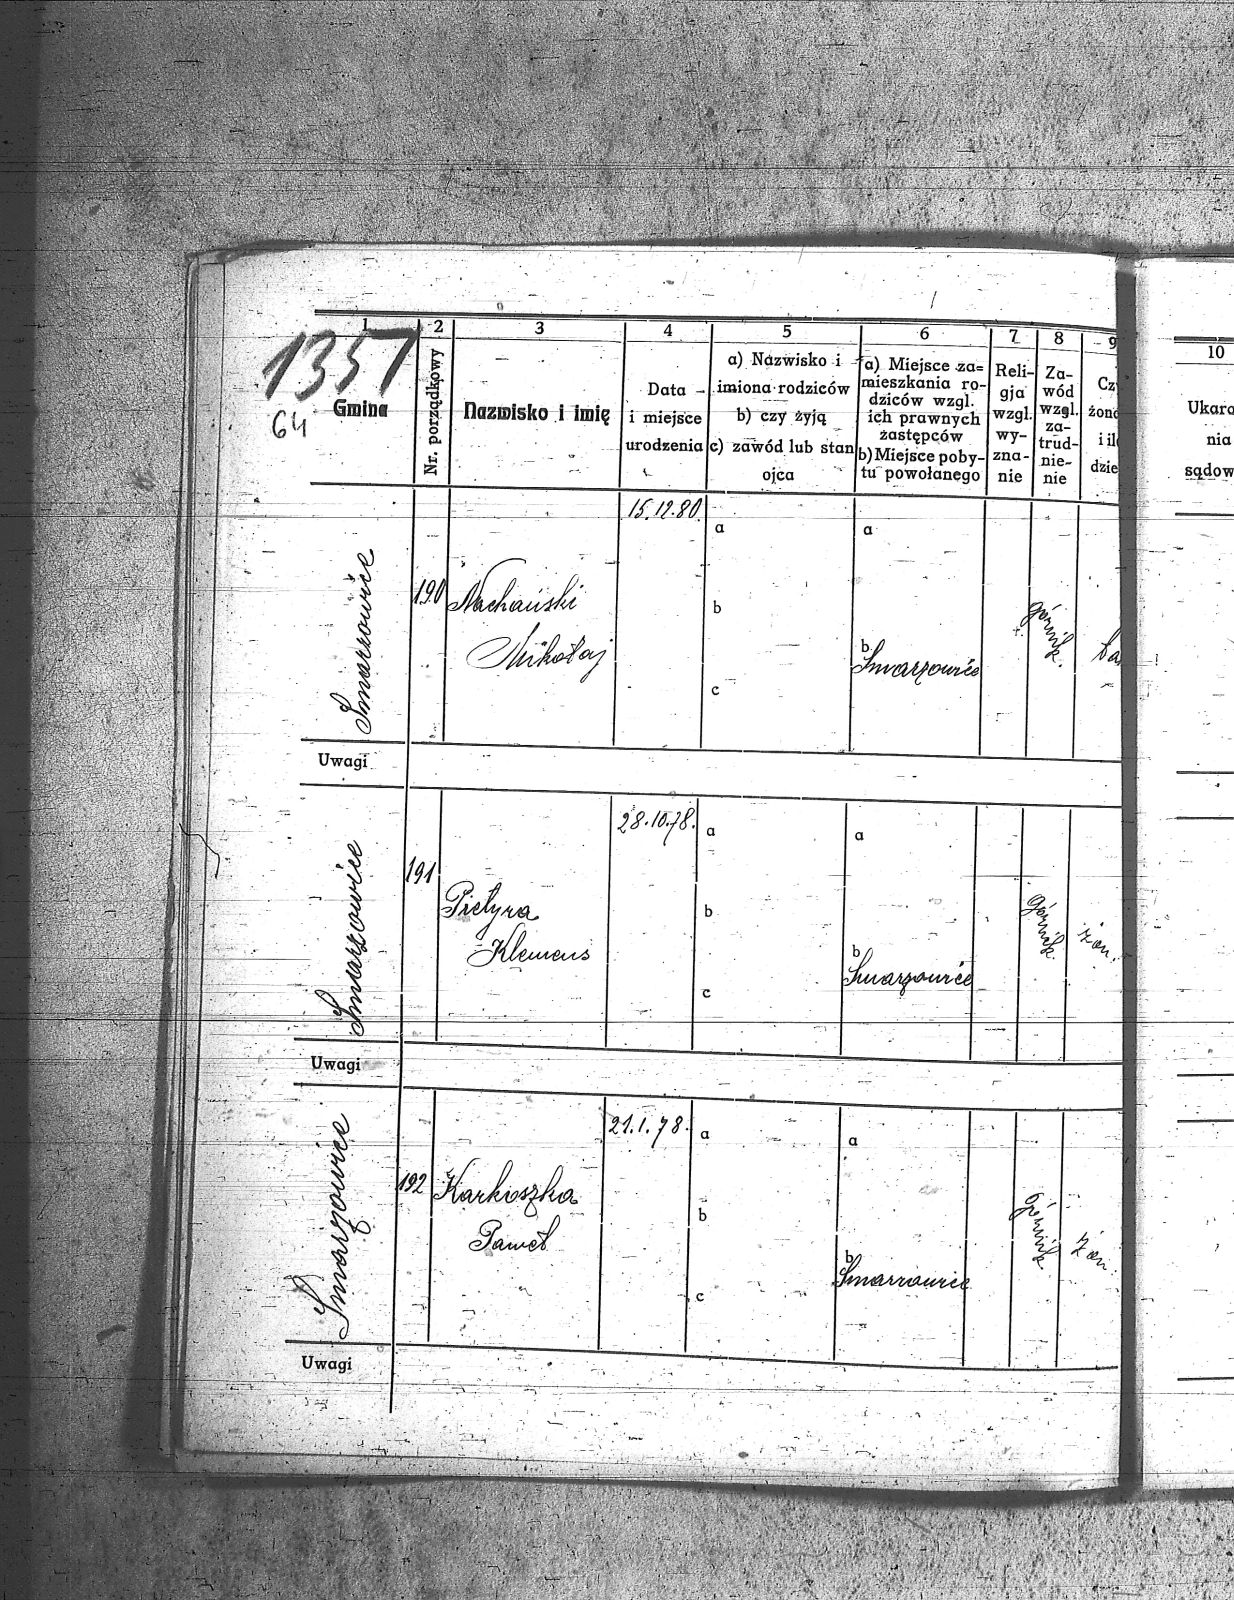 1357
64
1
Gmina
2
Nr. porządkowy
3
Nazwisko i imię
4
Data
i miejsce
urodzenia
5
a) Nazwisko i
imiona rodziców
b) czy żyją
c) zawód lub stan
ojca
6
a) Miejsce za=
mieszkania ro-
dziców wzgl.
ich prawnych
zastępców
b) Miejsce poby-
tu powołanego
7
Reli-
gja
wzgl.
wy-
zna-
nie
8
Za-
wód
wzgl.
za-
trud-
nie-
nie
9
Cz
żon
i il
dzie
10
Ukara
nia
sądow
Smarzowice
190
Mikołaj
15.12.80.
a
b
c
a
b
Smarzowice
górnik
Uwagi
Smarzowice
191
Pietyra
Klemens
28.10.78.
a
b
c
a
b
Smarzowice
górnik
żon.
Uwagi
Smarzowice
192
Karkoszka
Paweł
21.1.78.
a
b
c
a
b
Smarzowice
górnik
żon.
Uwagi